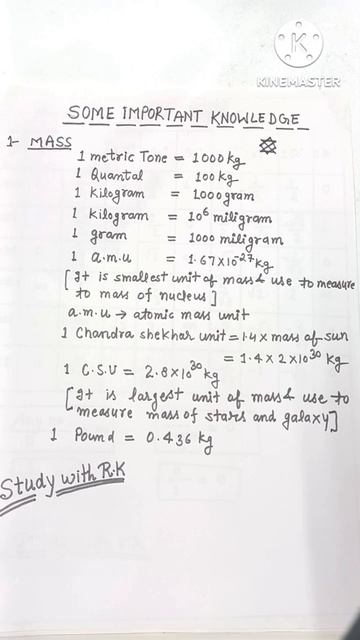 K
KINEMASTER
SOME IMPORTANT KNOWLEDGE
1- MASS
1 metric Tone = 1000 kg
1 Quantal = 100 kg
1 Kilogram = 1000 gram
1 Kilogram = 10⁶ miligram
1 gram = 1000 miligram
1 a.m.u = 1.67×10⁻²⁷ kg
[It is smallest unit of mass & use to measure
to mass of nucleus]
a.m.u → atomic mass unit
1 Chandra shekhar unit = 1.4 × mass of sun
= 1.4 × 2×10³⁰ kg
1 C.S.U = 2.8×10³⁰ kg
[It is largest unit of mass & use to
measure mass of stars and galaxy]
1 Pound = 0.436 kg
Study with R.K